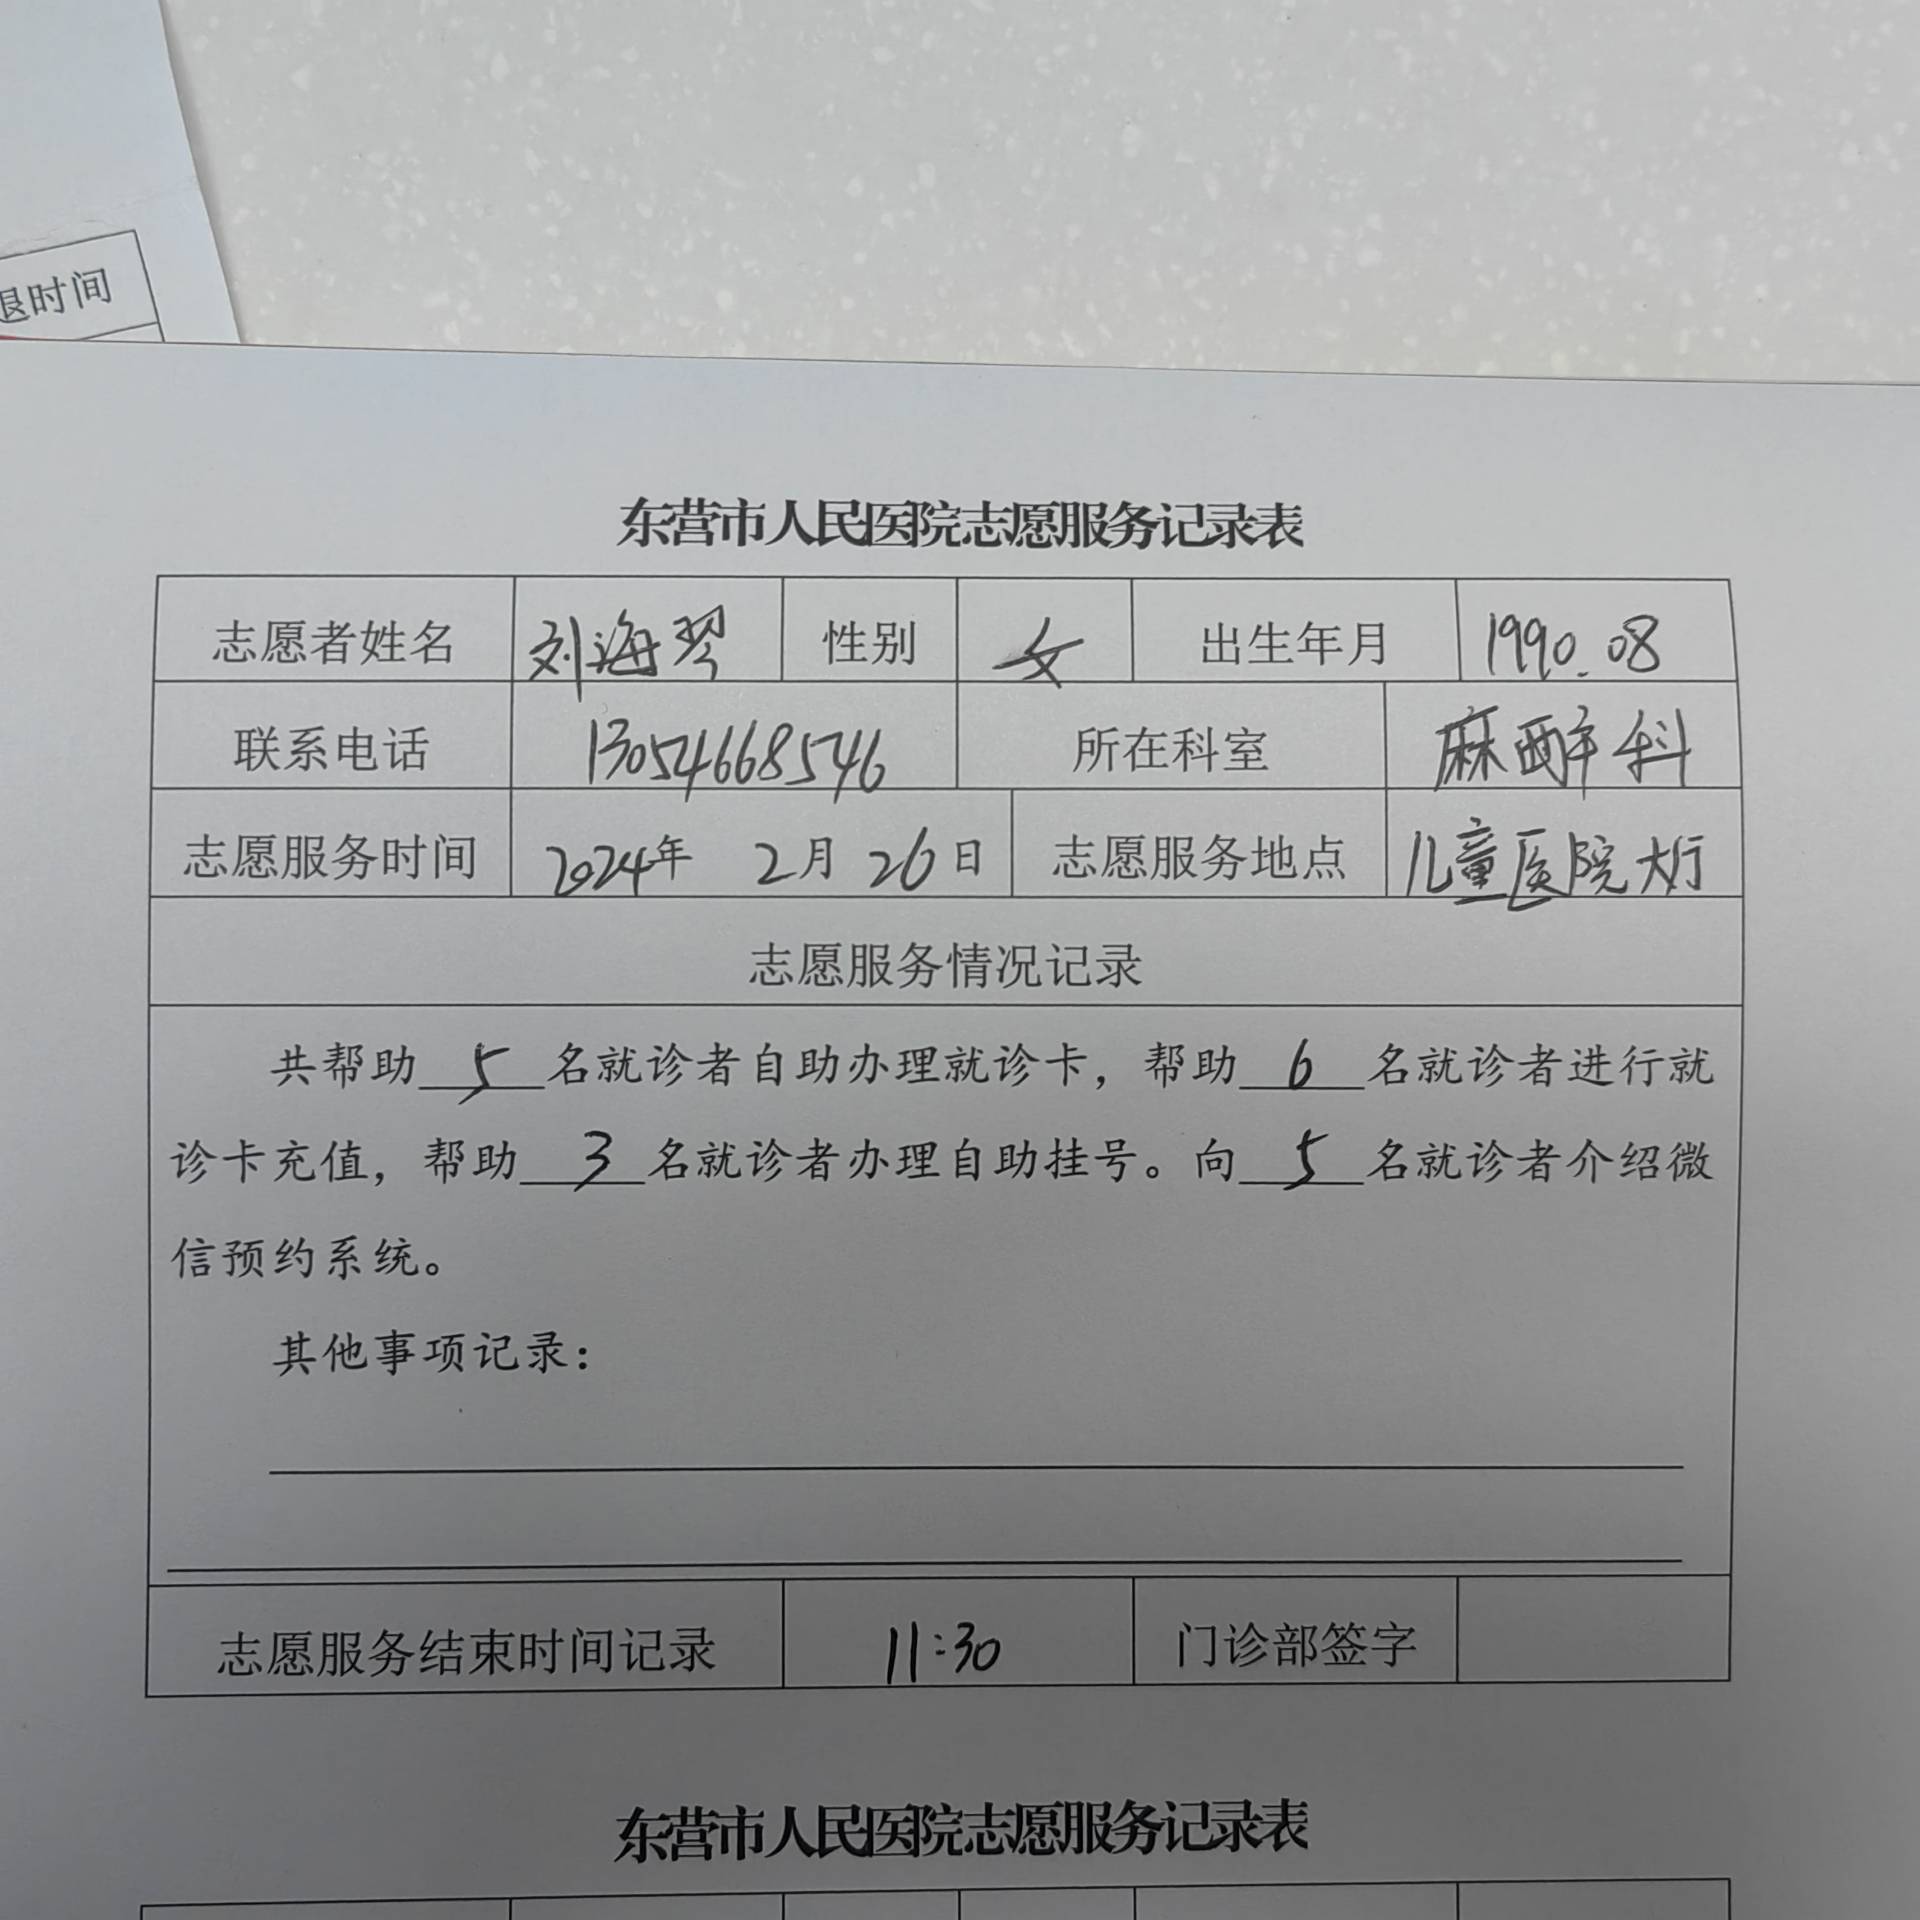 退时间
东营市人民医院志愿服务记录表
志愿者姓名 刘海琴 性别 女 出生年月 1990.08
联系电话 13054668546 所在科室 麻醉科
志愿服务时间 2024年 2月 26日 志愿服务地点 儿童医院大厅
志愿服务情况记录
共帮助 5 名就诊者自助办理就诊卡，帮助 6 名就诊者进行就
诊卡充值，帮助 3 名就诊者办理自助挂号。向 5 名就诊者介绍微
信预约系统。
其他事项记录：
志愿服务结束时间记录 11:30 门诊部签字
东营市人民医院志愿服务记录表